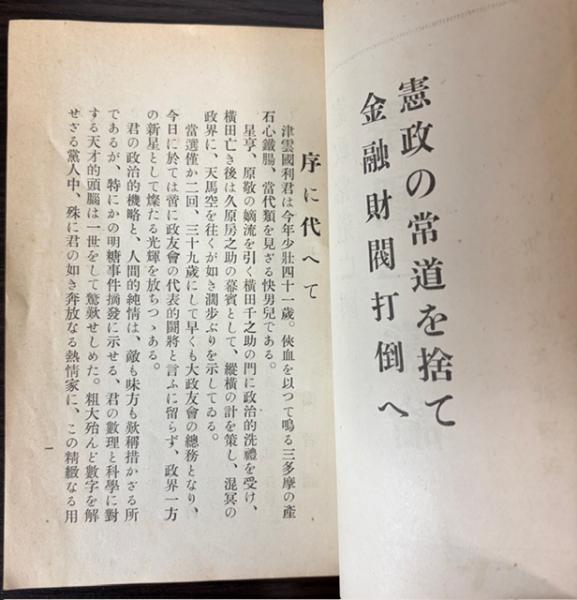 憲政の常道を捨て
金融財閥打倒へ
序に代へて
津雲國利君は今年少壯四十一歲。俠血を以つて鳴る三多摩の產
石心鐵腸、當代類を見ざる快男兒である。
星亨、原敬の嫡流を引く橫田千之助の門に政治的洗禮を受け、
橫田亡き後は久原房之助の幕賓として、縱橫の計を策し、混冥の
政界に、天馬空を往くが如き濶步ぶりを示してゐる。
當選僅か二回、三十九歲にして早くも大政友會の總務となり、
今日に於ては啻に政友會の代表的鬪將と言ふに留らず、政界一方
の新星として燦たる光輝を放ちつゝある。
君の政治的機略と、人間的純情は、敵も味方も歎稱措かざる所
であるが、特にかの明糖事件摘發に示せる、君の數理と科學に對
する天才的頭腦は一世をして驚歎せしめた。粗大殆んど數字を解
せざる黨人中、殊に君の如き奔放なる熱情家に、この精緻なる用
一